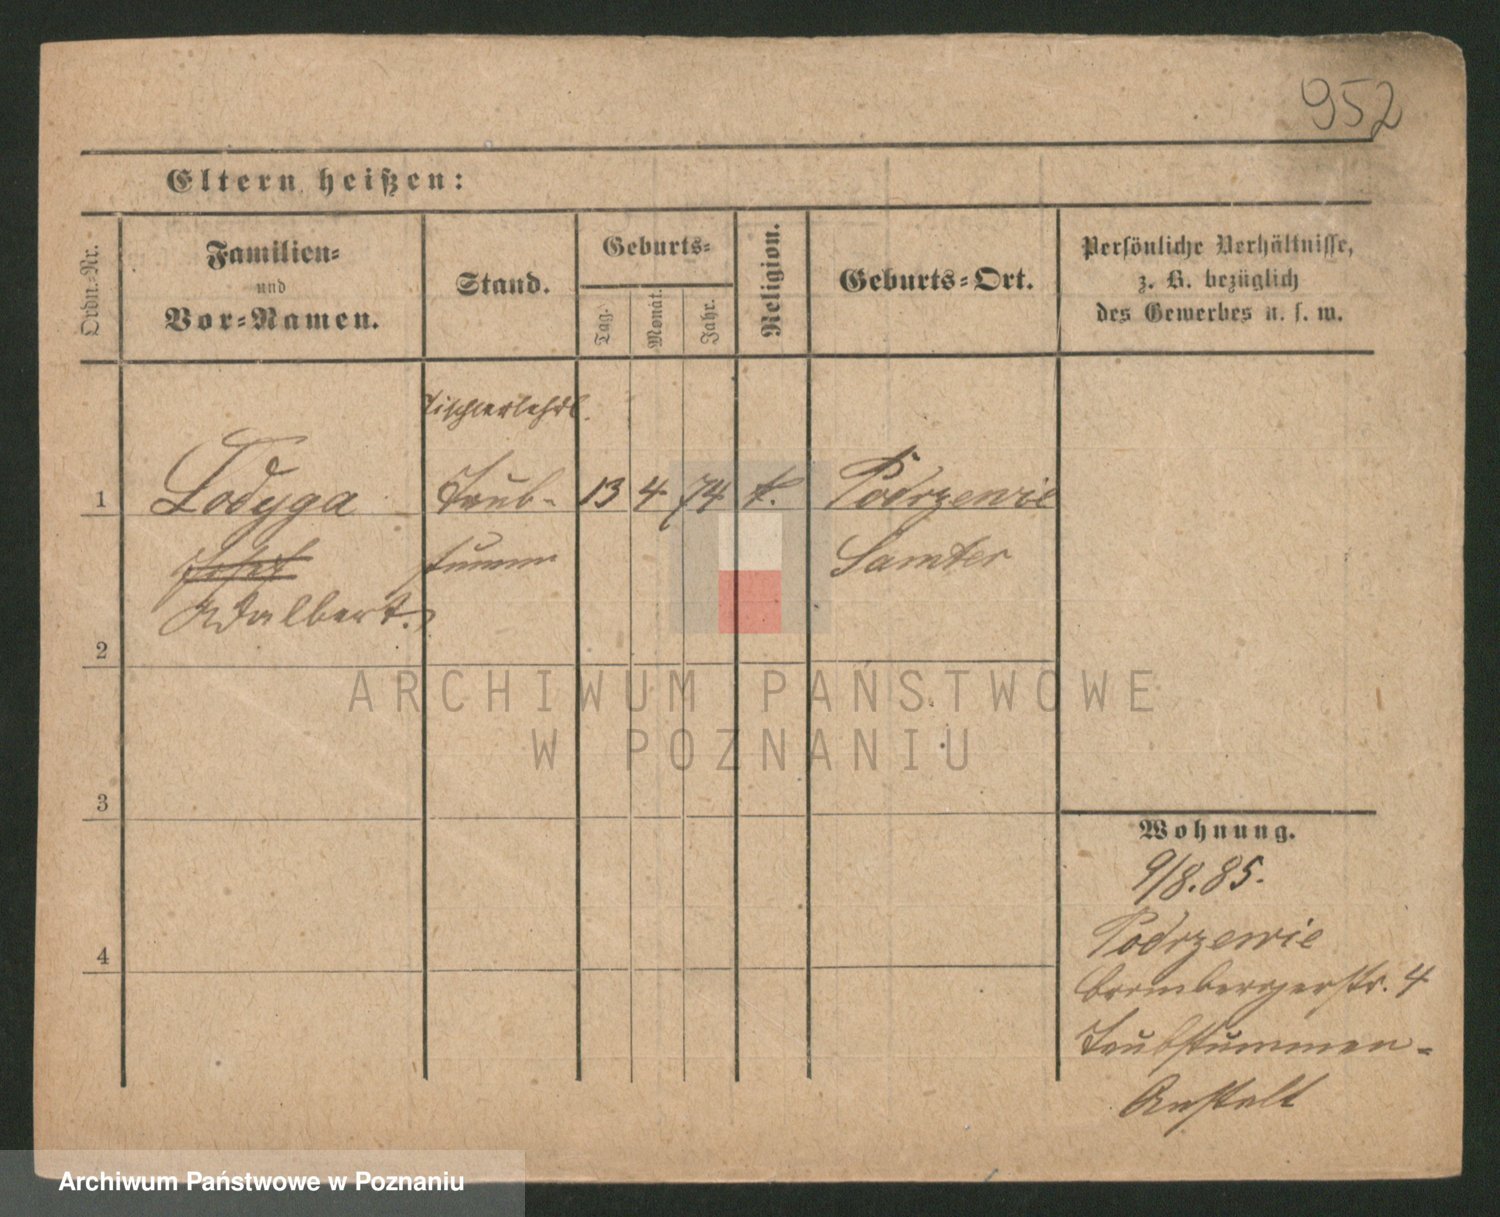 952
Eltern heißen:
Ordn.-Nr.
Familien-
und
Vor-Namen.
Stand.
Geburts-
Tag.
Monat.
Jahr.
Religion.
Geburts-Ort.
Persönliche Verhältnisse,
z. B. bezüglich
des Gewerbes u. s. w.
Tischlerlehrl.
1 Lodyga Taub- 13 4 74 k. Podrzewie
stumm Samter
Adalbert.
2
ARCHIWUM PAŃSTWOWE
W POZNANIU
3
Wohnung.
9/8.85.
Podrzewie
4
Brombergerstr. 4
Taubstummen-
Anstalt
Archiwum Państwowe w Poznaniu